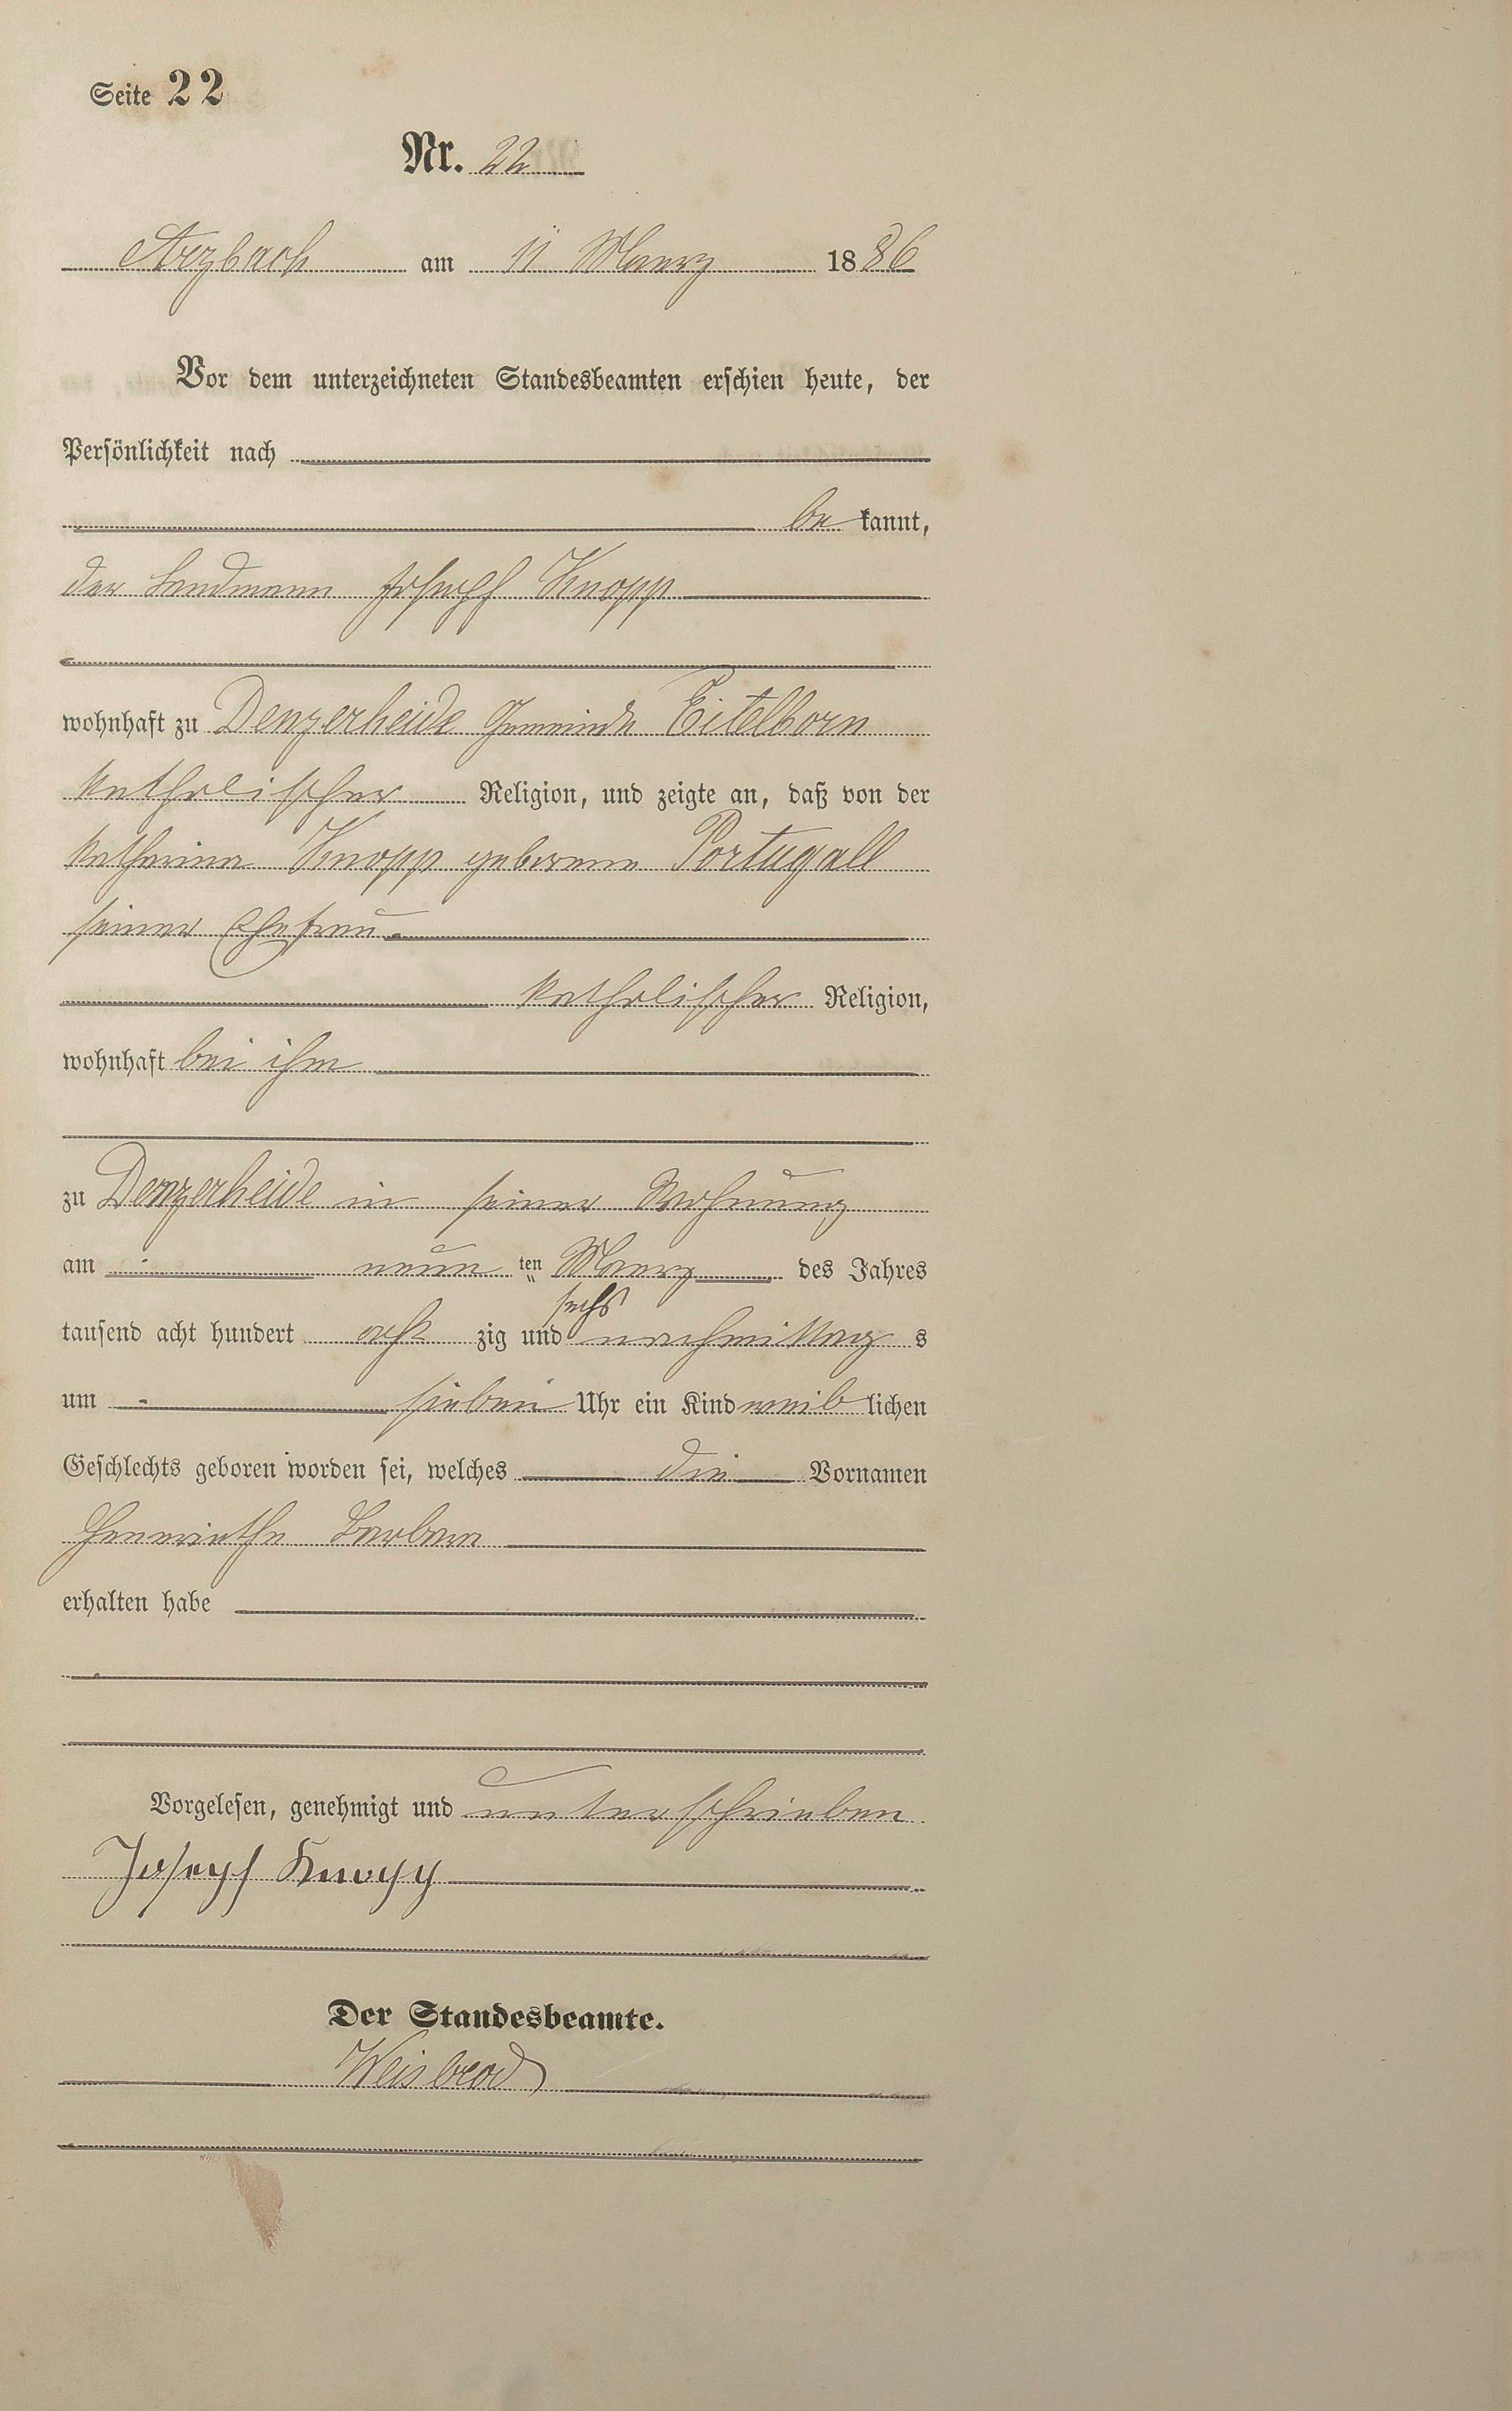 Seite 22
Nr. 22
Arzbach am 11 Maerz 1886
Vor dem unterzeichneten Standesbeamten erschien heute, der
Persönlichkeit nach
be kannt,
der Landmann Joseph Knopp
wohnhaft zu Denzerheide Gemeinde Eitelborn
katholischer Religion, und zeigte an, daß von der
Katharina Knopp geborene Portugall
seiner Ehefrau
katholischer Religion,
wohnhaft bei ihm
zu Denzerheide in seiner Wohnung
am neun ten Maerz des Jahres
sechs
tausend acht hundert acht zig und nachmittag s
um sieben Uhr ein Kind weib lichen
Geschlechts geboren worden sei, welches die Vornamen
Henriethe Barbara
erhalten habe
Vorgelesen, genehmigt und unterschrieben
Joseph Knopp
Der Standesbeamte.
Weisbrod